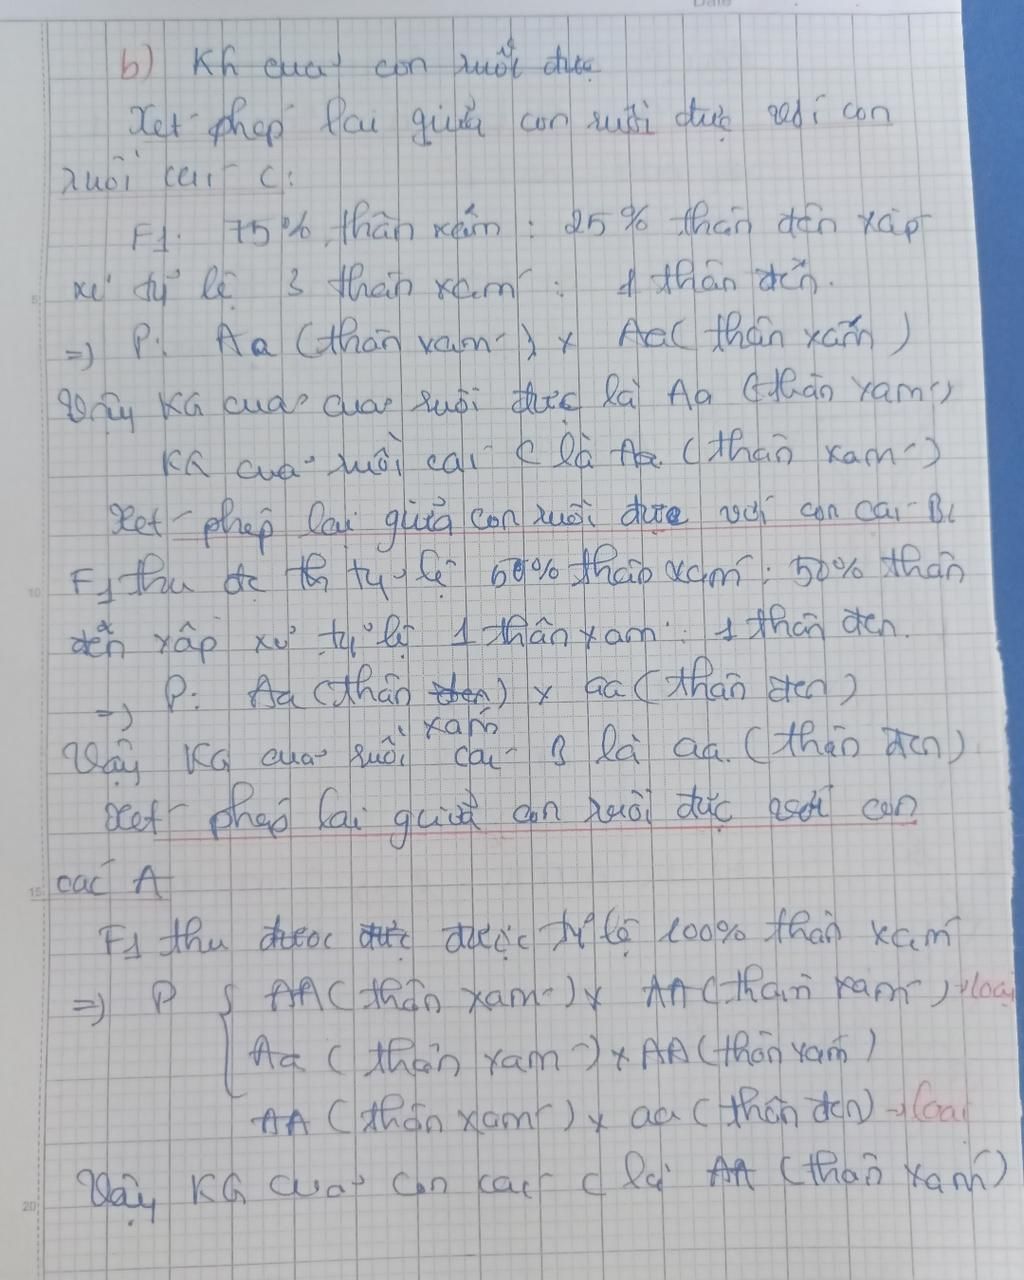 b) Kh của con ruồi đực
Xét phép lai giữa con ruồi đực với con
ruồi cái C:
F1: 75% thân xám : 25% thân đen xấp
xỉ tỷ lệ 3 thân xám : 1 thân đen.
=) P: Aa (thân xám) x Aa (thân xám)
Vậy KG của của ruồi đực là Aa (thân xám)
KG của ruồi cái C là Aa (thân xám)
Xét phép lai giữa con ruồi đực với con cái B:
F1 thu đc tỷ lệ 50% thân xám : 50% thân
đen xấp xỉ tỷ lệ 1 thân xám : 1 thân đen.
=) P: Aa (thân xám) x aa (thân đen)
Vậy KG của ruồi cái B là aa. (thân đen)
Xét phép lai giữa con ruồi đực với con
các A
F1 thu được tỷ lệ 100% thân xám
=) P { AA (thân xám) x AA (thân xám) → loại
Aa (thân xám) x AA (thân xám)
AA (thân xám) x aa (thân đen) → loại
Vậy KG của con cái C là AA (thân xám)
5
10
15
20